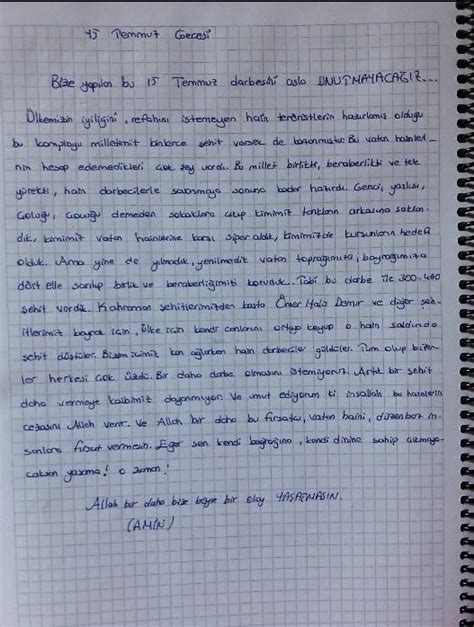 15 Temmuz Gecesi
Bize yapılan bu 15 Temmuz darbesini asla UNUTMAYACAĞIZ...
Ülkemizin iyiliğini, refahını istemeyen hain teröristlerin hazırlamış olduğu
bu komployu milletimiz binlerce şehit versek de kazanmıştır. Bu vatan hainleri-
nin hesap edemedikleri çok şey vardı. Bu millet birlikti, beraberlikti ve tek
yürekti, hain darbecilerle savaşmaya sonuna kadar hazırdı. Genci, yaşlısı,
çoluğu, çocuğu demeden sokaklara çıkıp kimimiz tankların arkasına saklan-
dık, kimimiz vatan hainlerine karşı siper aldık, kimimizde kurşunların hedefi
olduk. Ama yine de yılmadık, yenilmedik vatan toprağımıza, bayrağımıza
dört elle sarılıp birlik ve beraberliğimizi koruduk. Tabi bu darbe ile 300-400
şehit verdik. Kahraman şehitlerimizden başta Ömer Halis Demir ve diğer şeh-
itlerimiz bayrak için, ülke için kendi canlarını ortaya koyup o hain saldırıda
şehit düştüler. Bizim içimiz kan ağlarken hain darbeciler güldüler. Tüm olup biten-
ler herkesi çok üzdü. Bir daha darbe olmasını istemiyoruz. Artık bir şehit
daha vermeye kalbimiz dayanmıyor. Ve umut ediyorum ki inşallah bu hainlerin
cezasını Allah verir. Ve Allah bir daha bu fırsatçı, vatan haini, düzenbaz in-
sanlara fırsat vermesin. Eğer sen kendi bayrağına, kendi dinine sahip çıkmaya-
caksan yaşama! o zaman!
Allah bir daha bize böyle bir olay YAŞATMASIN.
(AMİN)